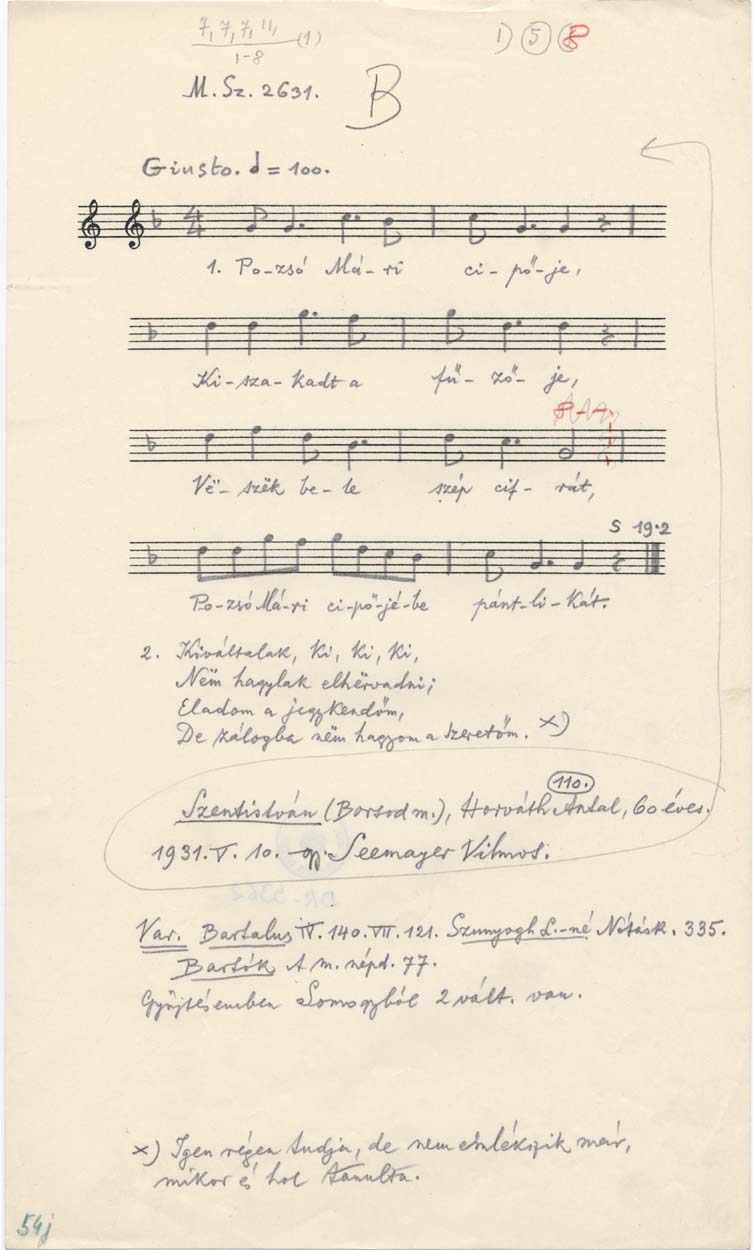 7, 7, 7, 11, (1)
1-8
1) 5 8
M. Sz. 2631.
B
Giusto. = 100.
4/4
1. Po-zsó Má-ri ci-pő-je,
Ki-sza-kadt a fű-ző-je,
Vë-szëk be-le szép cif-rát,
S 19.2
Po-zsó Má-ri ci-pő-jé-be pánt-li-kát.
2. Kiváltalak, ki, ki, ki,
Nëm hagylak elhërvadni;
Eladom a jegykendőm,
De zálogba nëm hagyom a szeretőm. x)
110.
Szentistván (Borsod m.), Horváth Antal, 60 éves.
1931. V. 10. gy. Seemayer Vilmos.
Var. Bartalus IV. 140. VII. 121. Szunyogh L.-né Nótásk. 335.
Bartók A m. népd. 77.
Gyűjtésemben Somogyból 2 vált. van.
x) Igen régen tudja, de nem emlékszik már,
mikor és hol tanulta.
54j